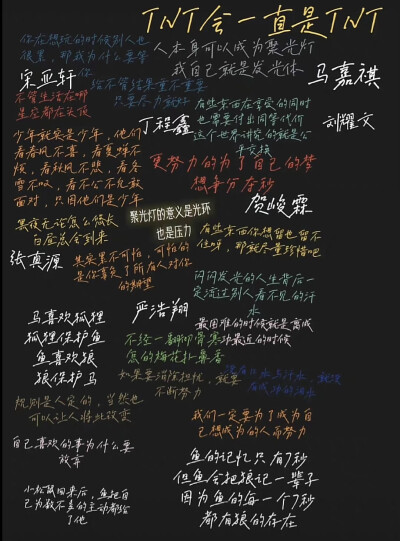 TNT会一直是TNT
你在想玩的时候别人也
很累，那我为什么要等
你
人本身可以成为聚光灯
我自己就是发光体
宋亚轩
马嘉祺
给不管结果重不重要
只要尽力就好
不管生活在哪
星空都在头顶
丁程鑫
有些东西在享受的同时
也需要付出同等代价
这个世界讲究的就是公
平交换
刘耀文
少年就应是少年，他们
看春风不喜，看夏蝉不
烦，看秋风不悲，看冬
雪不叹，看不公不允敢
面对，只因他们是少年
更努力的为了自己的梦
想争分夺秒
贺峻霖
黑夜无论怎么悠长
白昼总会到来
聚光灯的意义是光环
也是压力
有些东西你想留也留不
住呀，那就尽量珍惜吧
张真源
其实累不可怕，可怕的
是你辜负了所有人对你
的期望
闪闪发光的人生背后一
定流过别人看不见的汗
水
严浩翔
最困难的时候就是离成
功最近的时候
马喜欢狐狸
狐狸保护鱼
鱼喜欢狼
狼保护马
不经一翻彻骨寒
怎的梅花扑鼻香
如果要消除担忧，就要
不断努力
没有口水与汗水，就没
有成功的泪水
规则是人定的，当然也
可以让人将此改变
我们一定要为了成为自
己想成为的人而努力
自己喜欢的事为什么要
放弃
鱼的记忆只有7秒
但鱼会把狼记一辈子
因为鱼的每一个7秒
都有狼的存在
小松鼠回来后，鱼把自
己为数不多的主动都给
了他